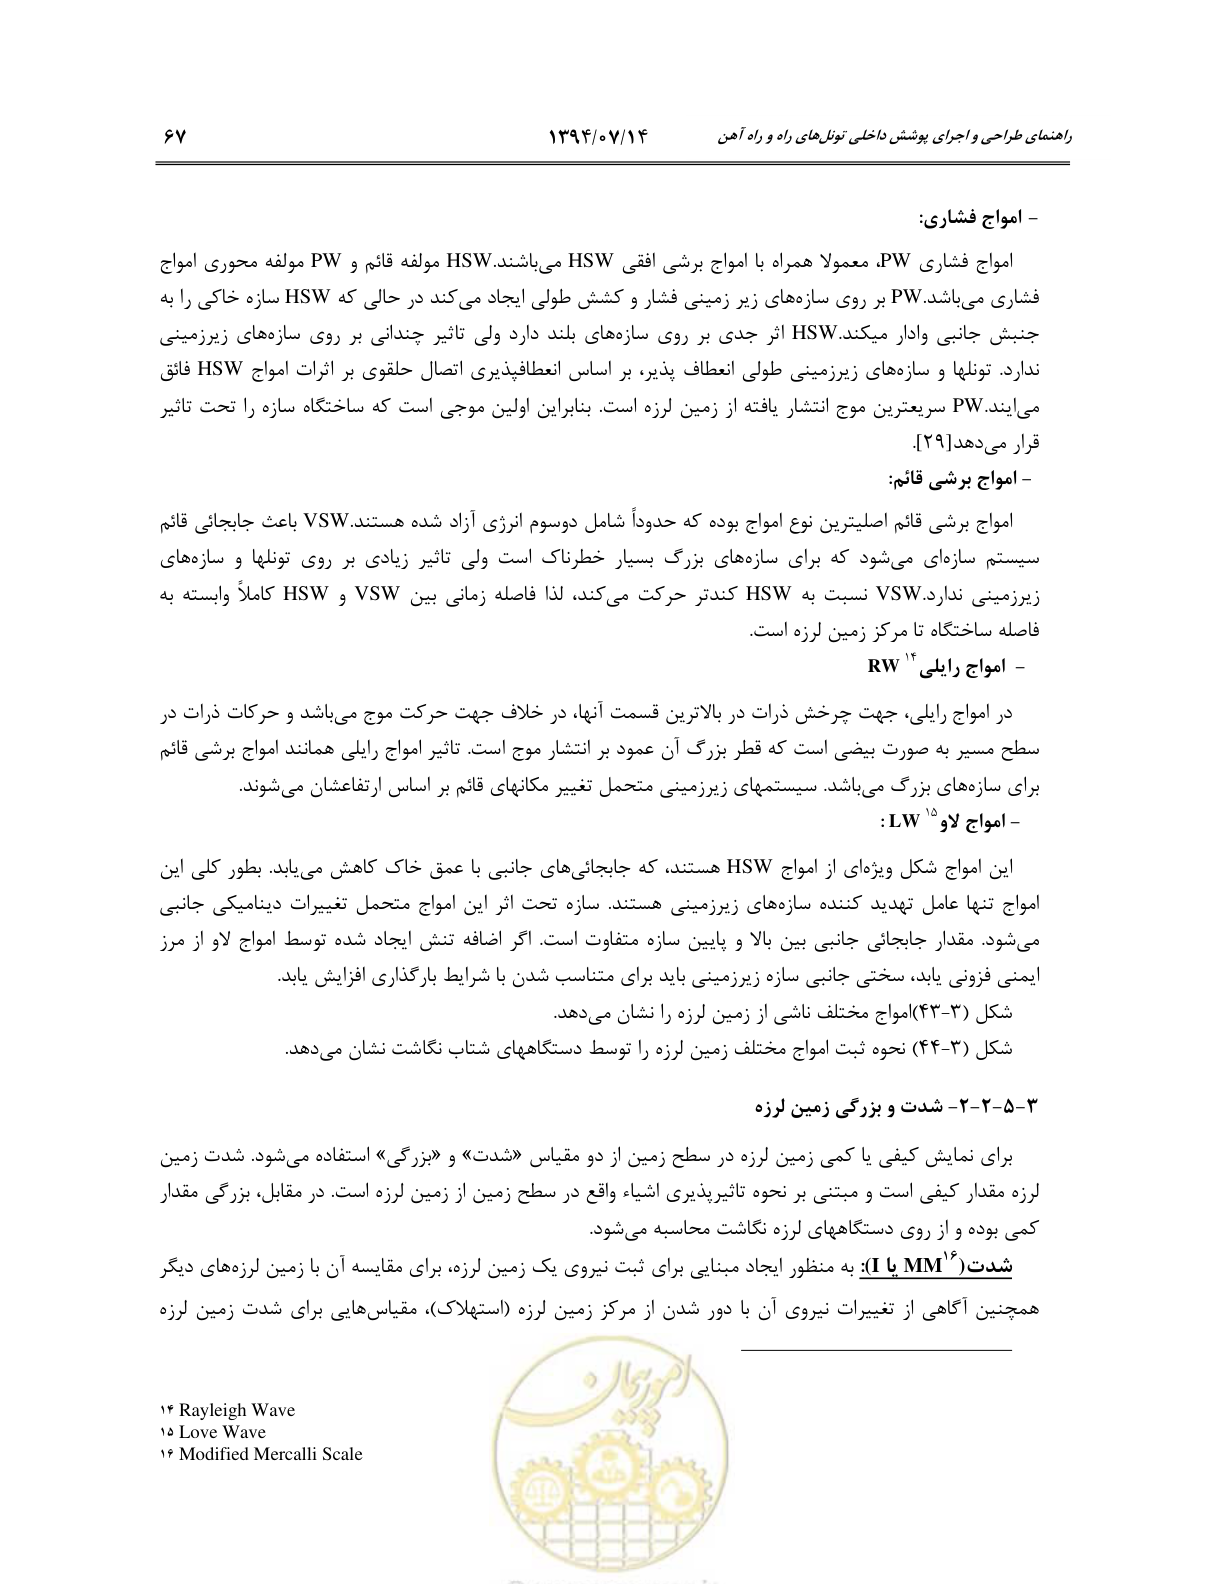 راهنمای طراحی و اجرای پوشش داخلی تونل‌های راه و راه آهن ۱۳۹۴/۰۷/۱۴ ۶۷
- امواج فشاری:
امواج فشاری PW، معمولا همراه با امواج برشی افقی HSW می‌باشند.HSW مولفه قائم و PW مولفه محوری امواج
فشاری می‌باشد.PW بر روی سازه‌های زیر زمینی فشار و کشش طولی ایجاد می‌کند در حالی که HSW سازه خاکی را به
جنبش جانبی وادار میکند.HSW اثر جدی بر روی سازه‌های بلند دارد ولی تاثیر چندانی بر روی سازه‌های زیرزمینی
ندارد. تونلها و سازه‌های زیرزمینی طولی انعطاف پذیر، بر اساس انعطافپذیری اتصال حلقوی بر اثرات امواج HSW فائق
می‌ایند.PW سریعترین موج انتشار یافته از زمین لرزه است. بنابراین اولین موجی است که ساختگاه سازه را تحت تاثیر
قرار می‌دهد[۲۹].
- امواج برشی قائم:
امواج برشی قائم اصلیترین نوع امواج بوده که حدوداً شامل دوسوم انرژی آزاد شده هستند.VSW باعث جابجائی قائم
سیستم سازه‌ای می‌شود که برای سازه‌های بزرگ بسیار خطرناک است ولی تاثیر زیادی بر روی تونلها و سازه‌های
زیرزمینی ندارد.VSW نسبت به HSW کندتر حرکت می‌کند، لذا فاصله زمانی بین VSW و HSW کاملاً وابسته به
فاصله ساختگاه تا مرکز زمین لرزه است.
- امواج رایلی۱۴ RW
در امواج رایلی، جهت چرخش ذرات در بالاترین قسمت آنها، در خلاف جهت حرکت موج می‌باشد و حرکات ذرات در
سطح مسیر به صورت بیضی است که قطر بزرگ آن عمود بر انتشار موج است. تاثیر امواج رایلی همانند امواج برشی قائم
برای سازه‌های بزرگ می‌باشد. سیستمهای زیرزمینی متحمل تغییر مکانهای قائم بر اساس ارتفاعشان می‌شوند.
- امواج لاو۱۵ LW :
این امواج شکل ویژه‌ای از امواج HSW هستند، که جابجائی‌های جانبی با عمق خاک کاهش می‌یابد. بطور کلی این
امواج تنها عامل تهدید کننده سازه‌های زیرزمینی هستند. سازه تحت اثر این امواج متحمل تغییرات دینامیکی جانبی
می‌شود. مقدار جابجائی جانبی بین بالا و پایین سازه متفاوت است. اگر اضافه تنش ایجاد شده توسط امواج لاو از مرز
ایمنی فزونی یابد، سختی جانبی سازه زیرزمینی باید برای متناسب شدن با شرایط بارگذاری افزایش یابد.
شکل (۳-۴۳)امواج مختلف ناشی از زمین لرزه را نشان می‌دهد.
شکل (۳-۴۴) نحوه ثبت امواج مختلف زمین لرزه را توسط دستگاههای شتاب نگاشت نشان می‌دهد.
۳-۵-۲-۲- شدت و بزرگی زمین لرزه
برای نمایش کیفی یا کمی زمین لرزه در سطح زمین از دو مقیاس «شدت» و «بزرگی» استفاده می‌شود. شدت زمین
لرزه مقدار کیفی است و مبتنی بر نحوه تاثیرپذیری اشیاء واقع در سطح زمین از زمین لرزه است. در مقابل، بزرگی مقدار
کمی بوده و از روی دستگاههای لرزه نگاشت محاسبه می‌شود.
شدت(MM۱۶ یا I): به منظور ایجاد مبنایی برای ثبت نیروی یک زمین لرزه، برای مقایسه آن با زمین لرزه‌های دیگر
همچنین آگاهی از تغییرات نیروی آن با دور شدن از مرکز زمین لرزه (استهلاک)، مقیاس‌هایی برای شدت زمین لرزه
۱۴ Rayleigh Wave
۱۵ Love Wave
۱۶ Modified Mercalli Scale
امور پیمان